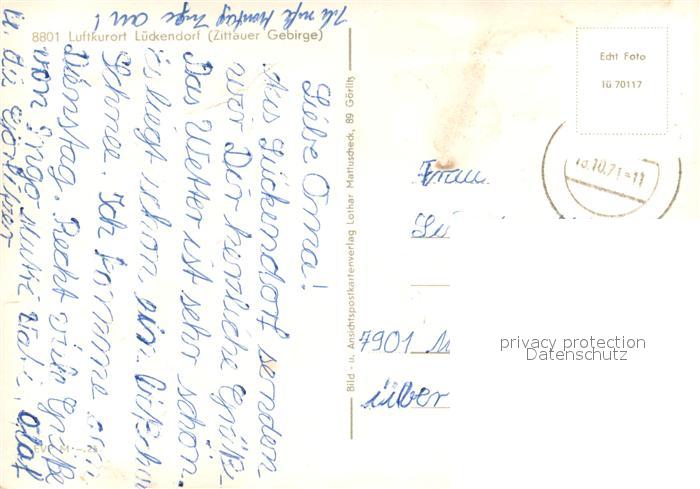 Ich rufe Montag Inge an!
8801 Luftkurort Lückendorf (Zittauer Gebirge)
Liebe Oma!
Aus Lückendorf senden
wir Dir herzliche Grüße.
Das Wetter ist sehr schön.
Es liegt schon ein bißchen
Schnee. Ich komme am
Dienstag. Recht viele Grüße
von Ingo, Mutti, Vati, Olaf
u. die Görlitzer
EV M
Bild - u. Ansichtspostkartenverlag Lothar Mattuscheck, 89 Görlitz
Echt Foto
Tü 70117
18.10.71-11
Frau
7901 M
über
privacy protection
Datenschutz